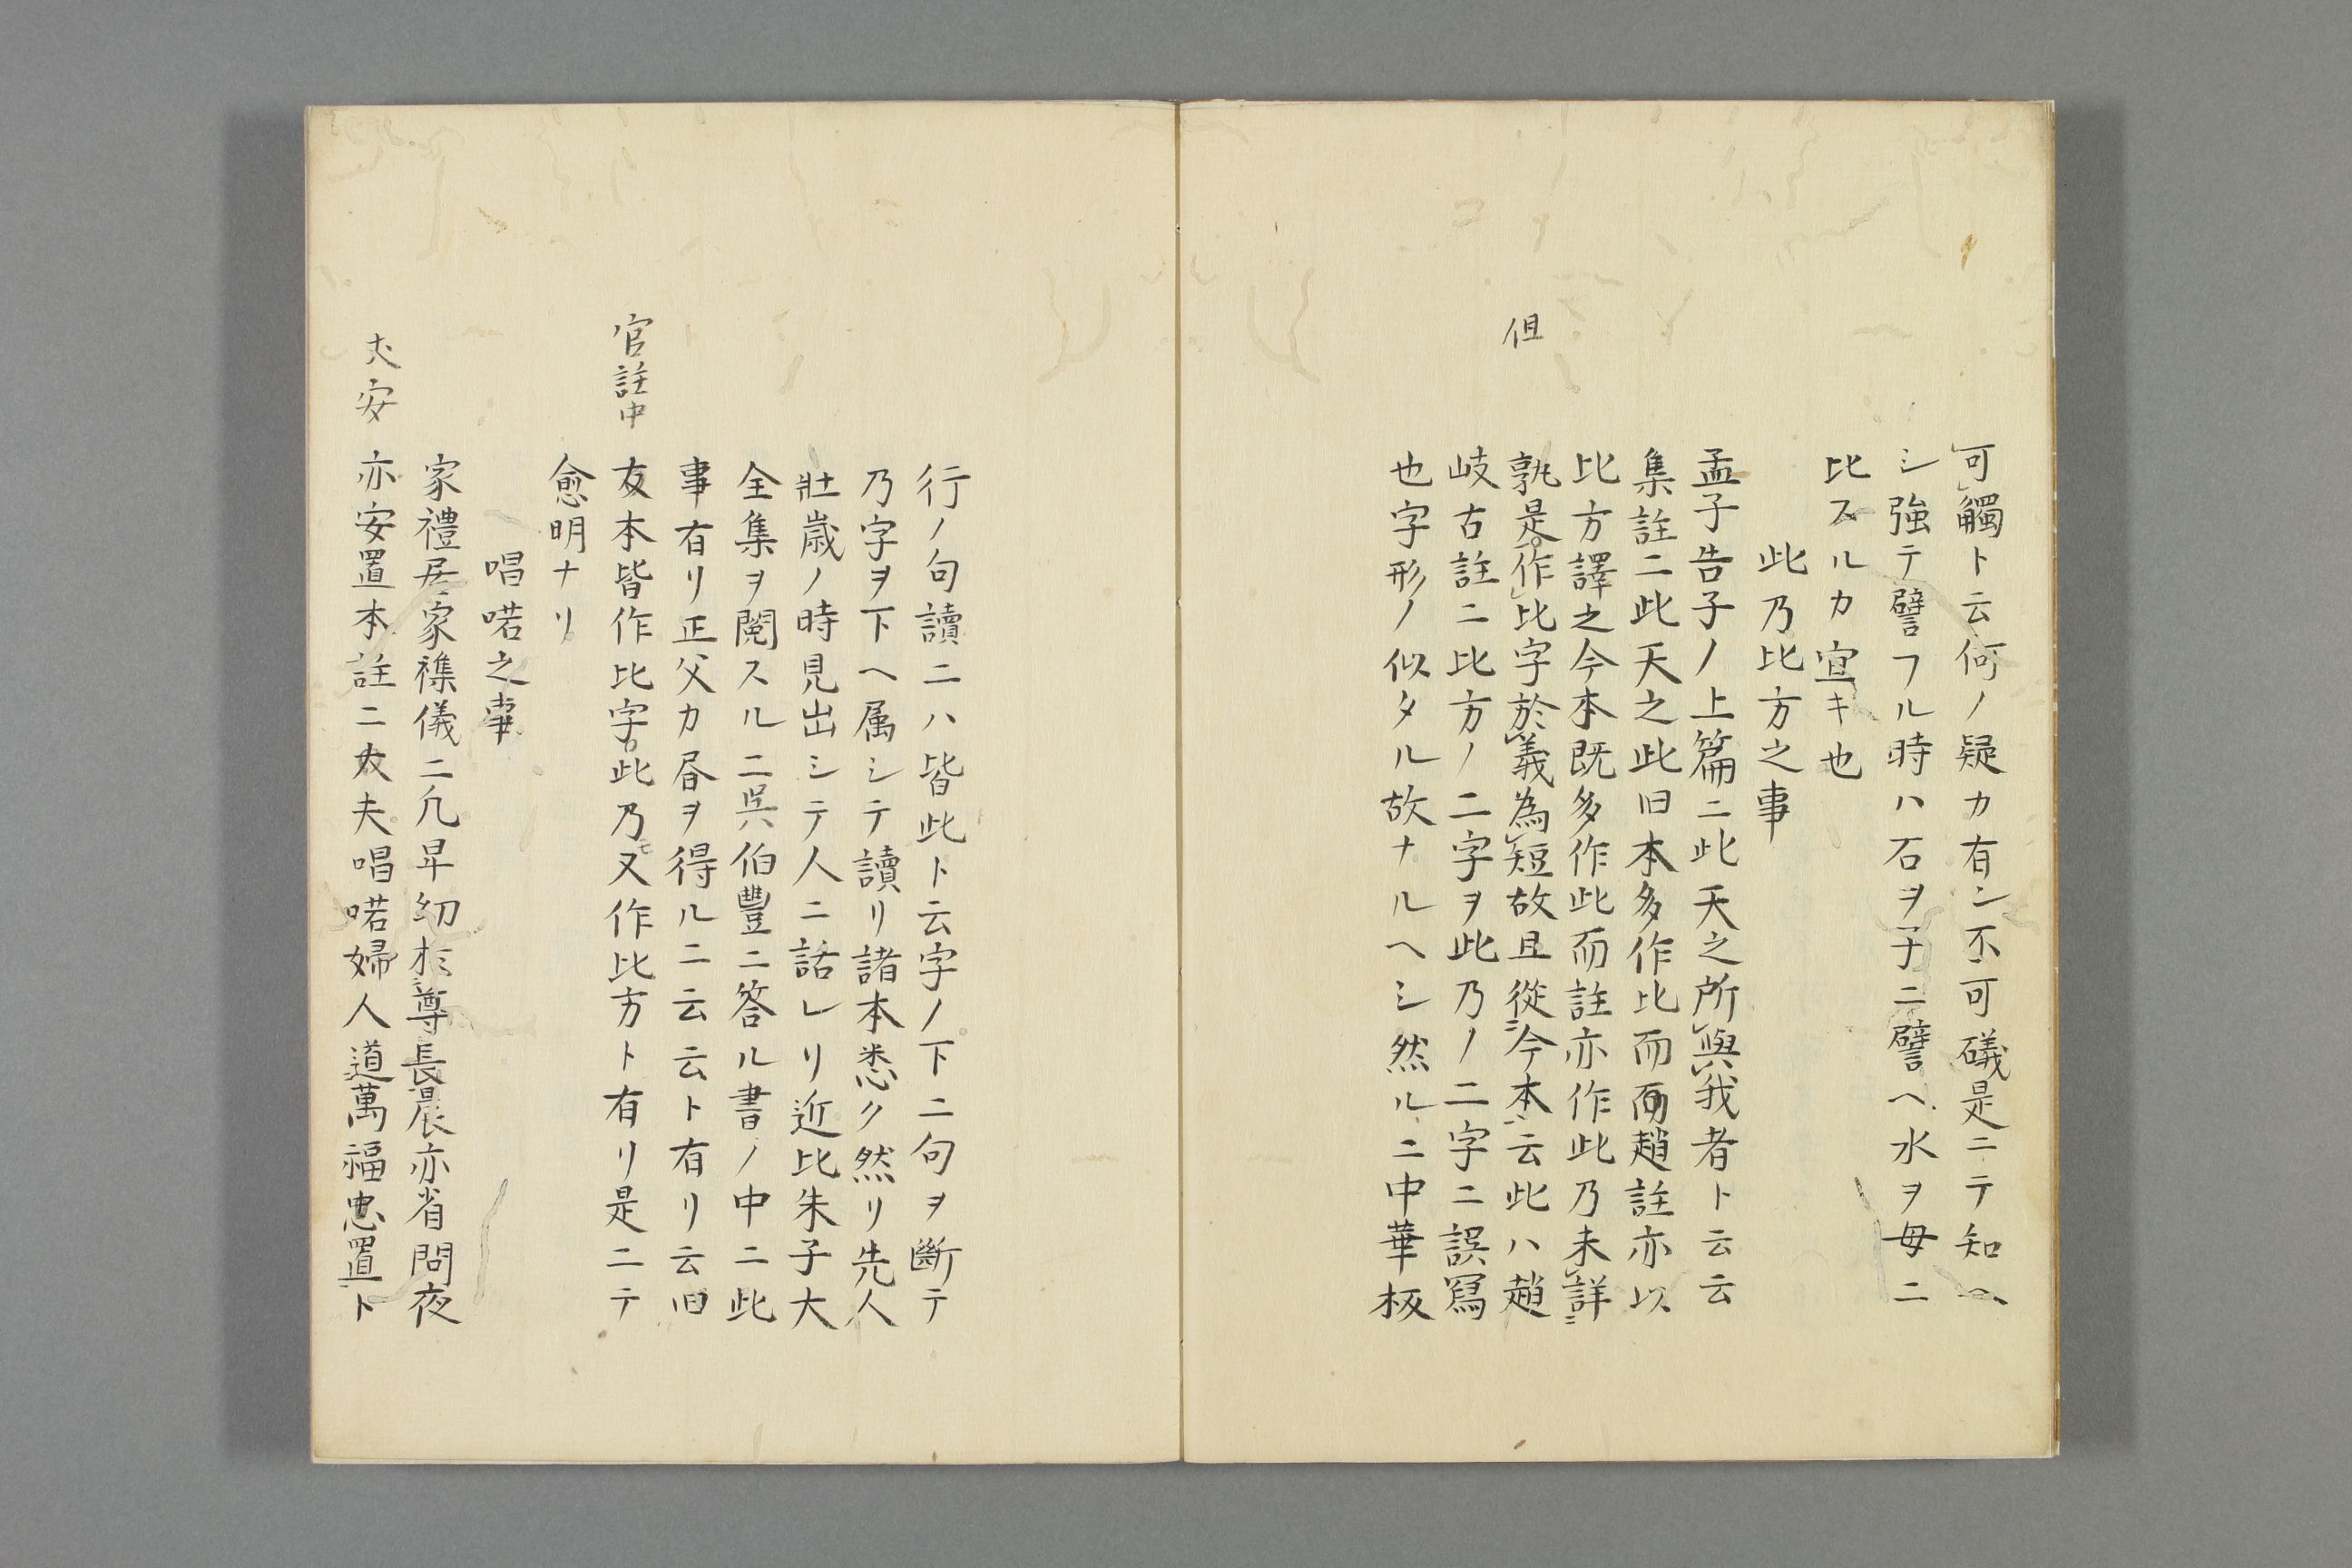 可觸ト云何ノ疑カ有ン不可礒是ニテ知ヘ
シ強テ譬フル時ハ石ヲ子ニ譬ヘ水ヲ母ニ
比スルカ宜キ也
此乃比方之事
孟子告子ノ上篇ニ此天之所與我者ト云云
集註ニ此天之此旧本多作比而趙註亦以
比方譯之今本既多作此而註亦作此乃未詳
孰是作比字於義為短故且從今本云此ハ趙
岐古註ニ比方ノ二字ヲ此乃ノ二字ニ誤寫
也字形ノ似タル故ナルヘシ然ルニ中華板
但
行ノ句讀ニハ皆此ト云字ノ下ニ句ヲ斷テ
乃字ヲ下ヘ属シテ讀リ諸本悉ク然リ先人
壯歳ノ時見出シテ人ニ話レリ近比朱子大
全集ヲ閲スルニ呉伯豐ニ答ル書ノ中ニ此
事有リ正父カ昏ヲ得ルニ云云ト有リ云旧
友本皆作比字此乃又作比方ト有リ是ニテ
官註中
愈明ナリ
唱喏之事
家禮居家襍儀ニ凢卑幼於尊長晨亦省問夜
亦安置本註ニ丈夫唱喏婦人道萬福忠置ト
丈安